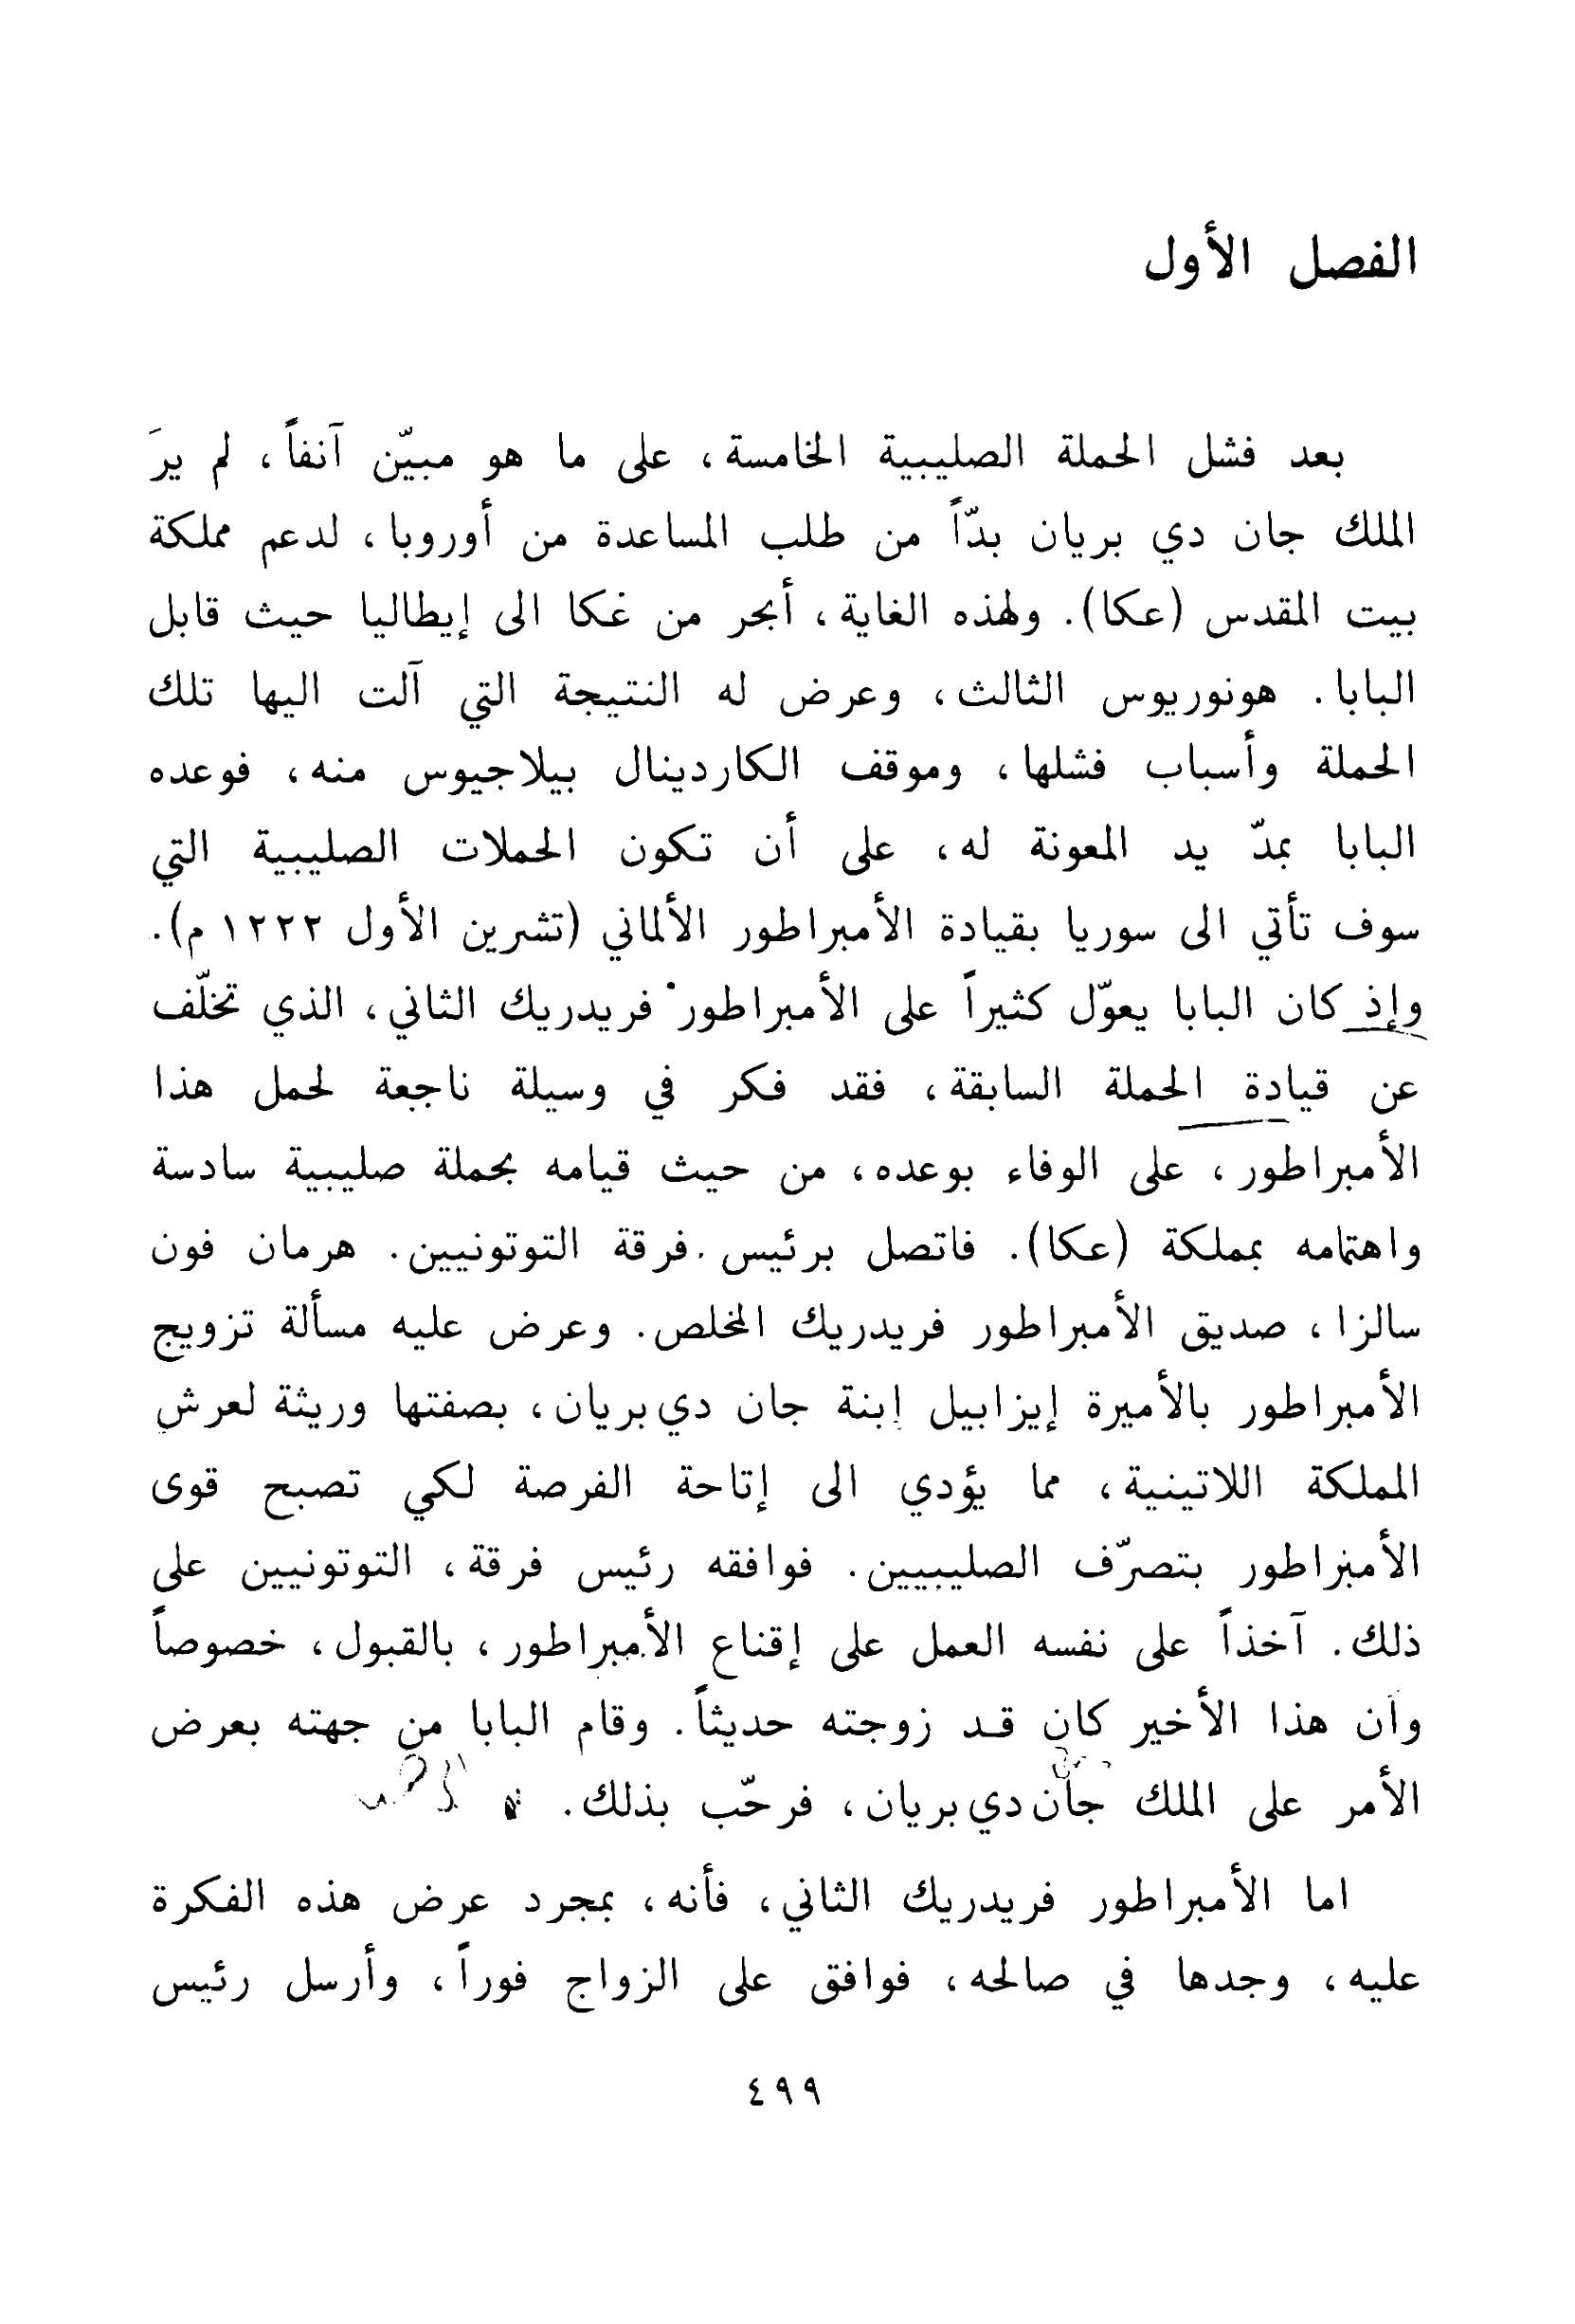 الفصل الأول
بعد فشل الحملة الصليبية الخامسة، على ما هو مبيّن آنفاً، لم يرَ
الملك جان دي بريان بدّاً من طلب المساعدة من أوروبا، لدعم مملكة
بيت المقدس (عكا). ولهذه الغاية، أبحر من عكا الى إيطاليا حيث قابل
البابا. هونوريوس الثالث، وعرض له النتيجة التي آلت اليها تلك
الحملة وأسباب فشلها، وموقف الكاردينال بيلاجيوس منه، فوعده
البابا بمدّ يد المعونة له، على أن تكون الحملات الصليبية التي
سوف تأتي الى سوريا بقيادة الأمبراطور الألماني (تشرين الأول ١٢٢٢ م).
وإذ كان البابا يعوّل كثيراً على الأمبراطور فريدريك الثاني، الذي تخلّف
عن قيادة الحملة السابقة، فقد فكر في وسيلة ناجعة لحمل هذا
الأمبراطور، على الوفاء بوعده، من حيث قيامه بحملة صليبية سادسة
واهتمامه بمملكة (عكا). فاتصل برئيس فرقة التوتونيين. هرمان فون
سالزا، صديق الأمبراطور فريدريك المخلص. وعرض عليه مسألة تزويج
الأمبراطور بالأميرة إيزابيل إبنة جان دي بريان، بصفتها وريثة لعرش
المملكة اللاتينية، مما يؤدي الى إتاحة الفرصة لكي تصبح قوى
الأمبراطور بتصرّف الصليبيين. فوافقه رئيس فرقة، التوتونيين على
ذلك. آخذاً على نفسه العمل على إقناع الأمبراطور، بالقبول، خصوصاً
وأن هذا الأخير كان قد زوجته حديثاً. وقام البابا من جهته بعرض
الأمر على الملك جان دي بريان، فرحّب بذلك.
اما الأمبراطور فريدريك الثاني، فأنه، بمجرد عرض هذه الفكرة
عليه، وجدها في صالحه، فوافق على الزواج فوراً، وأرسل رئيس
٤٩٩